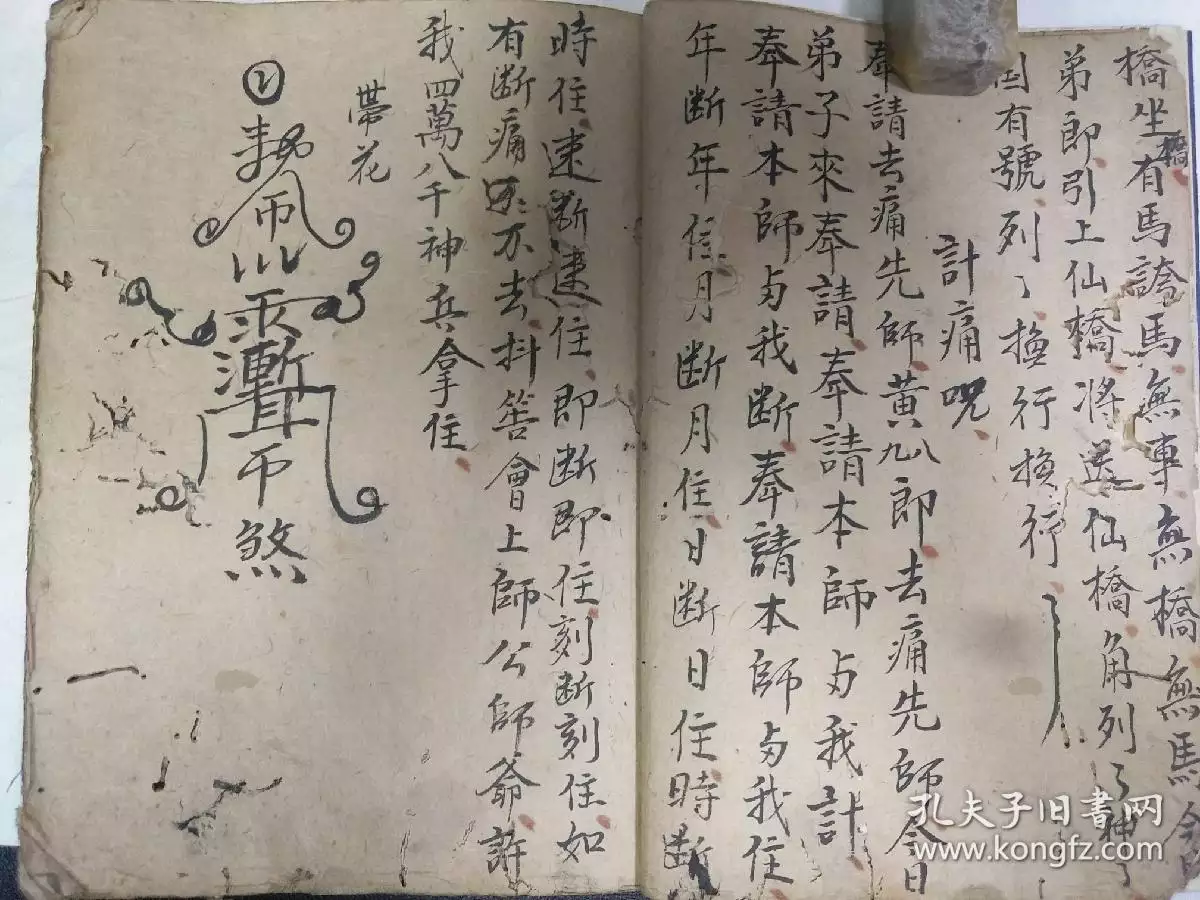 橋坐有馬誇馬無專無橋無馬今
橋
弟郎引上仙橋將送仙橋角列了神了
国有號列〻換行換行
計痛呪
奉請去痛先師黄九八郎去痛先師今日
弟子來奉請奉請本師与我計
奉請本師与我断奉請本師与我住
年断年住月断月住日断日住時断
時住速断速住即断即住刻断刻住如
有断痛不去抖筶會上師公師爺許
我四萬八千神兵拿住
帶花
煞
孔夫子旧書网
www.kongfz.com